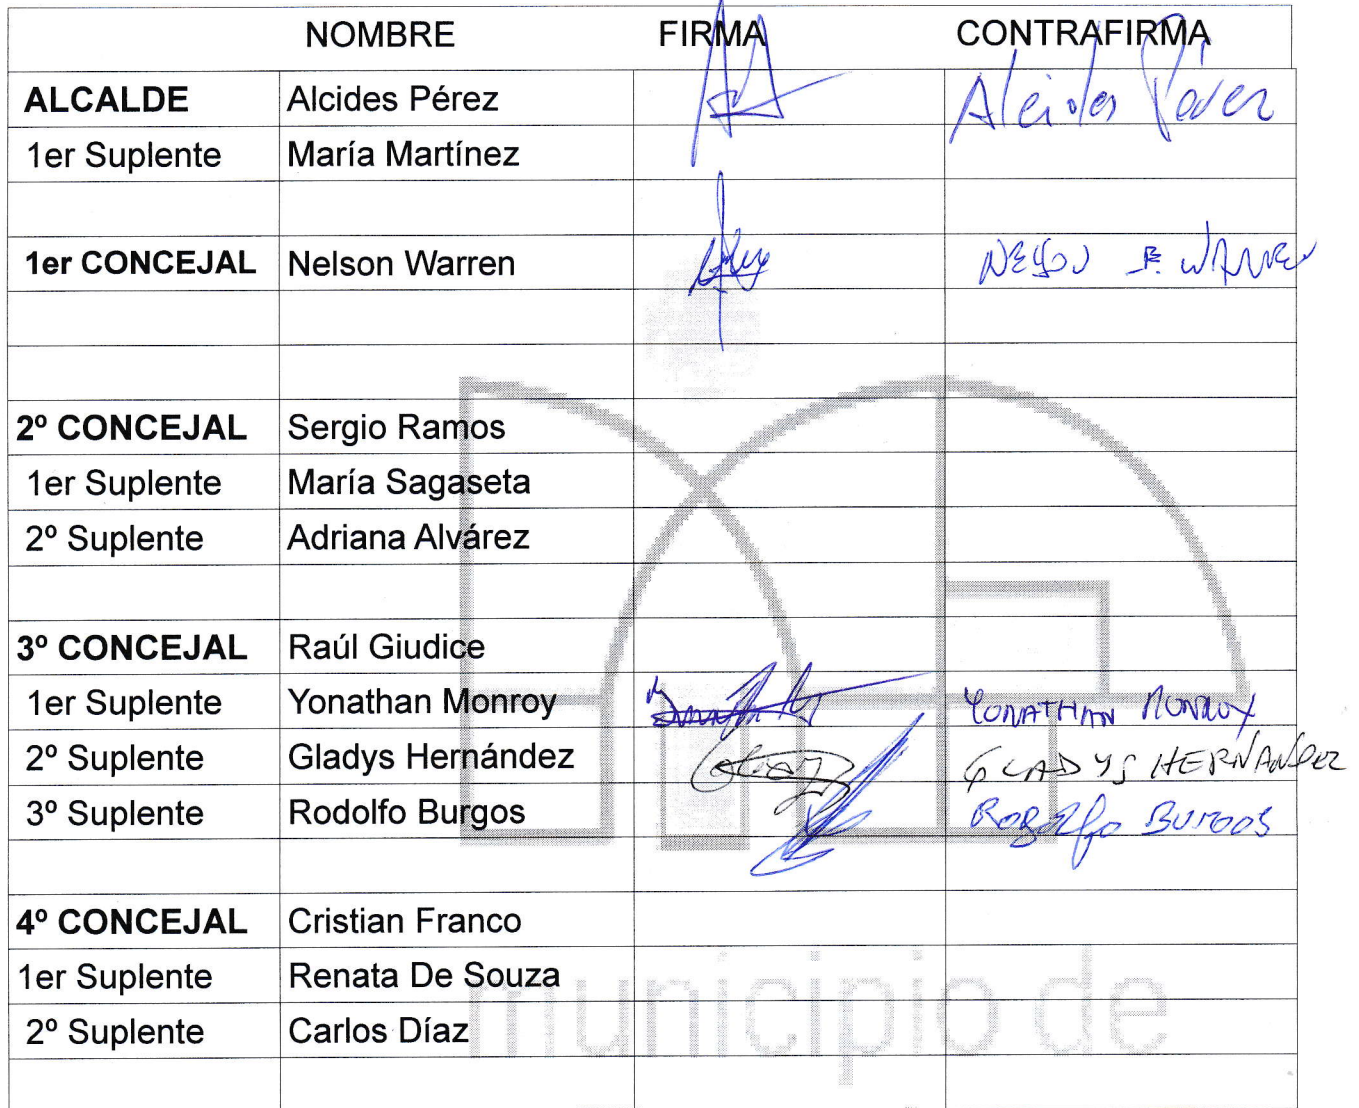 NOMBRE FIRMA CONTRAFIRMA
ALCALDE Alcides Pérez Alcides Pérez
1er Suplente María Martínez
1er CONCEJAL Nelson Warren NELSON E. WARREN
2º CONCEJAL Sergio Ramos
1er Suplente María Sagaseta
2º Suplente Adriana Alvárez
3º CONCEJAL Raúl Giudice
1er Suplente Yonathan Monroy YONATHAN MONROY
2º Suplente Gladys Hernández GLADYS HERNANDEZ
3º Suplente Rodolfo Burgos Rodolfo BURGOS
4º CONCEJAL Cristian Franco
1er Suplente Renata De Souza
2º Suplente Carlos Díaz
municipio de